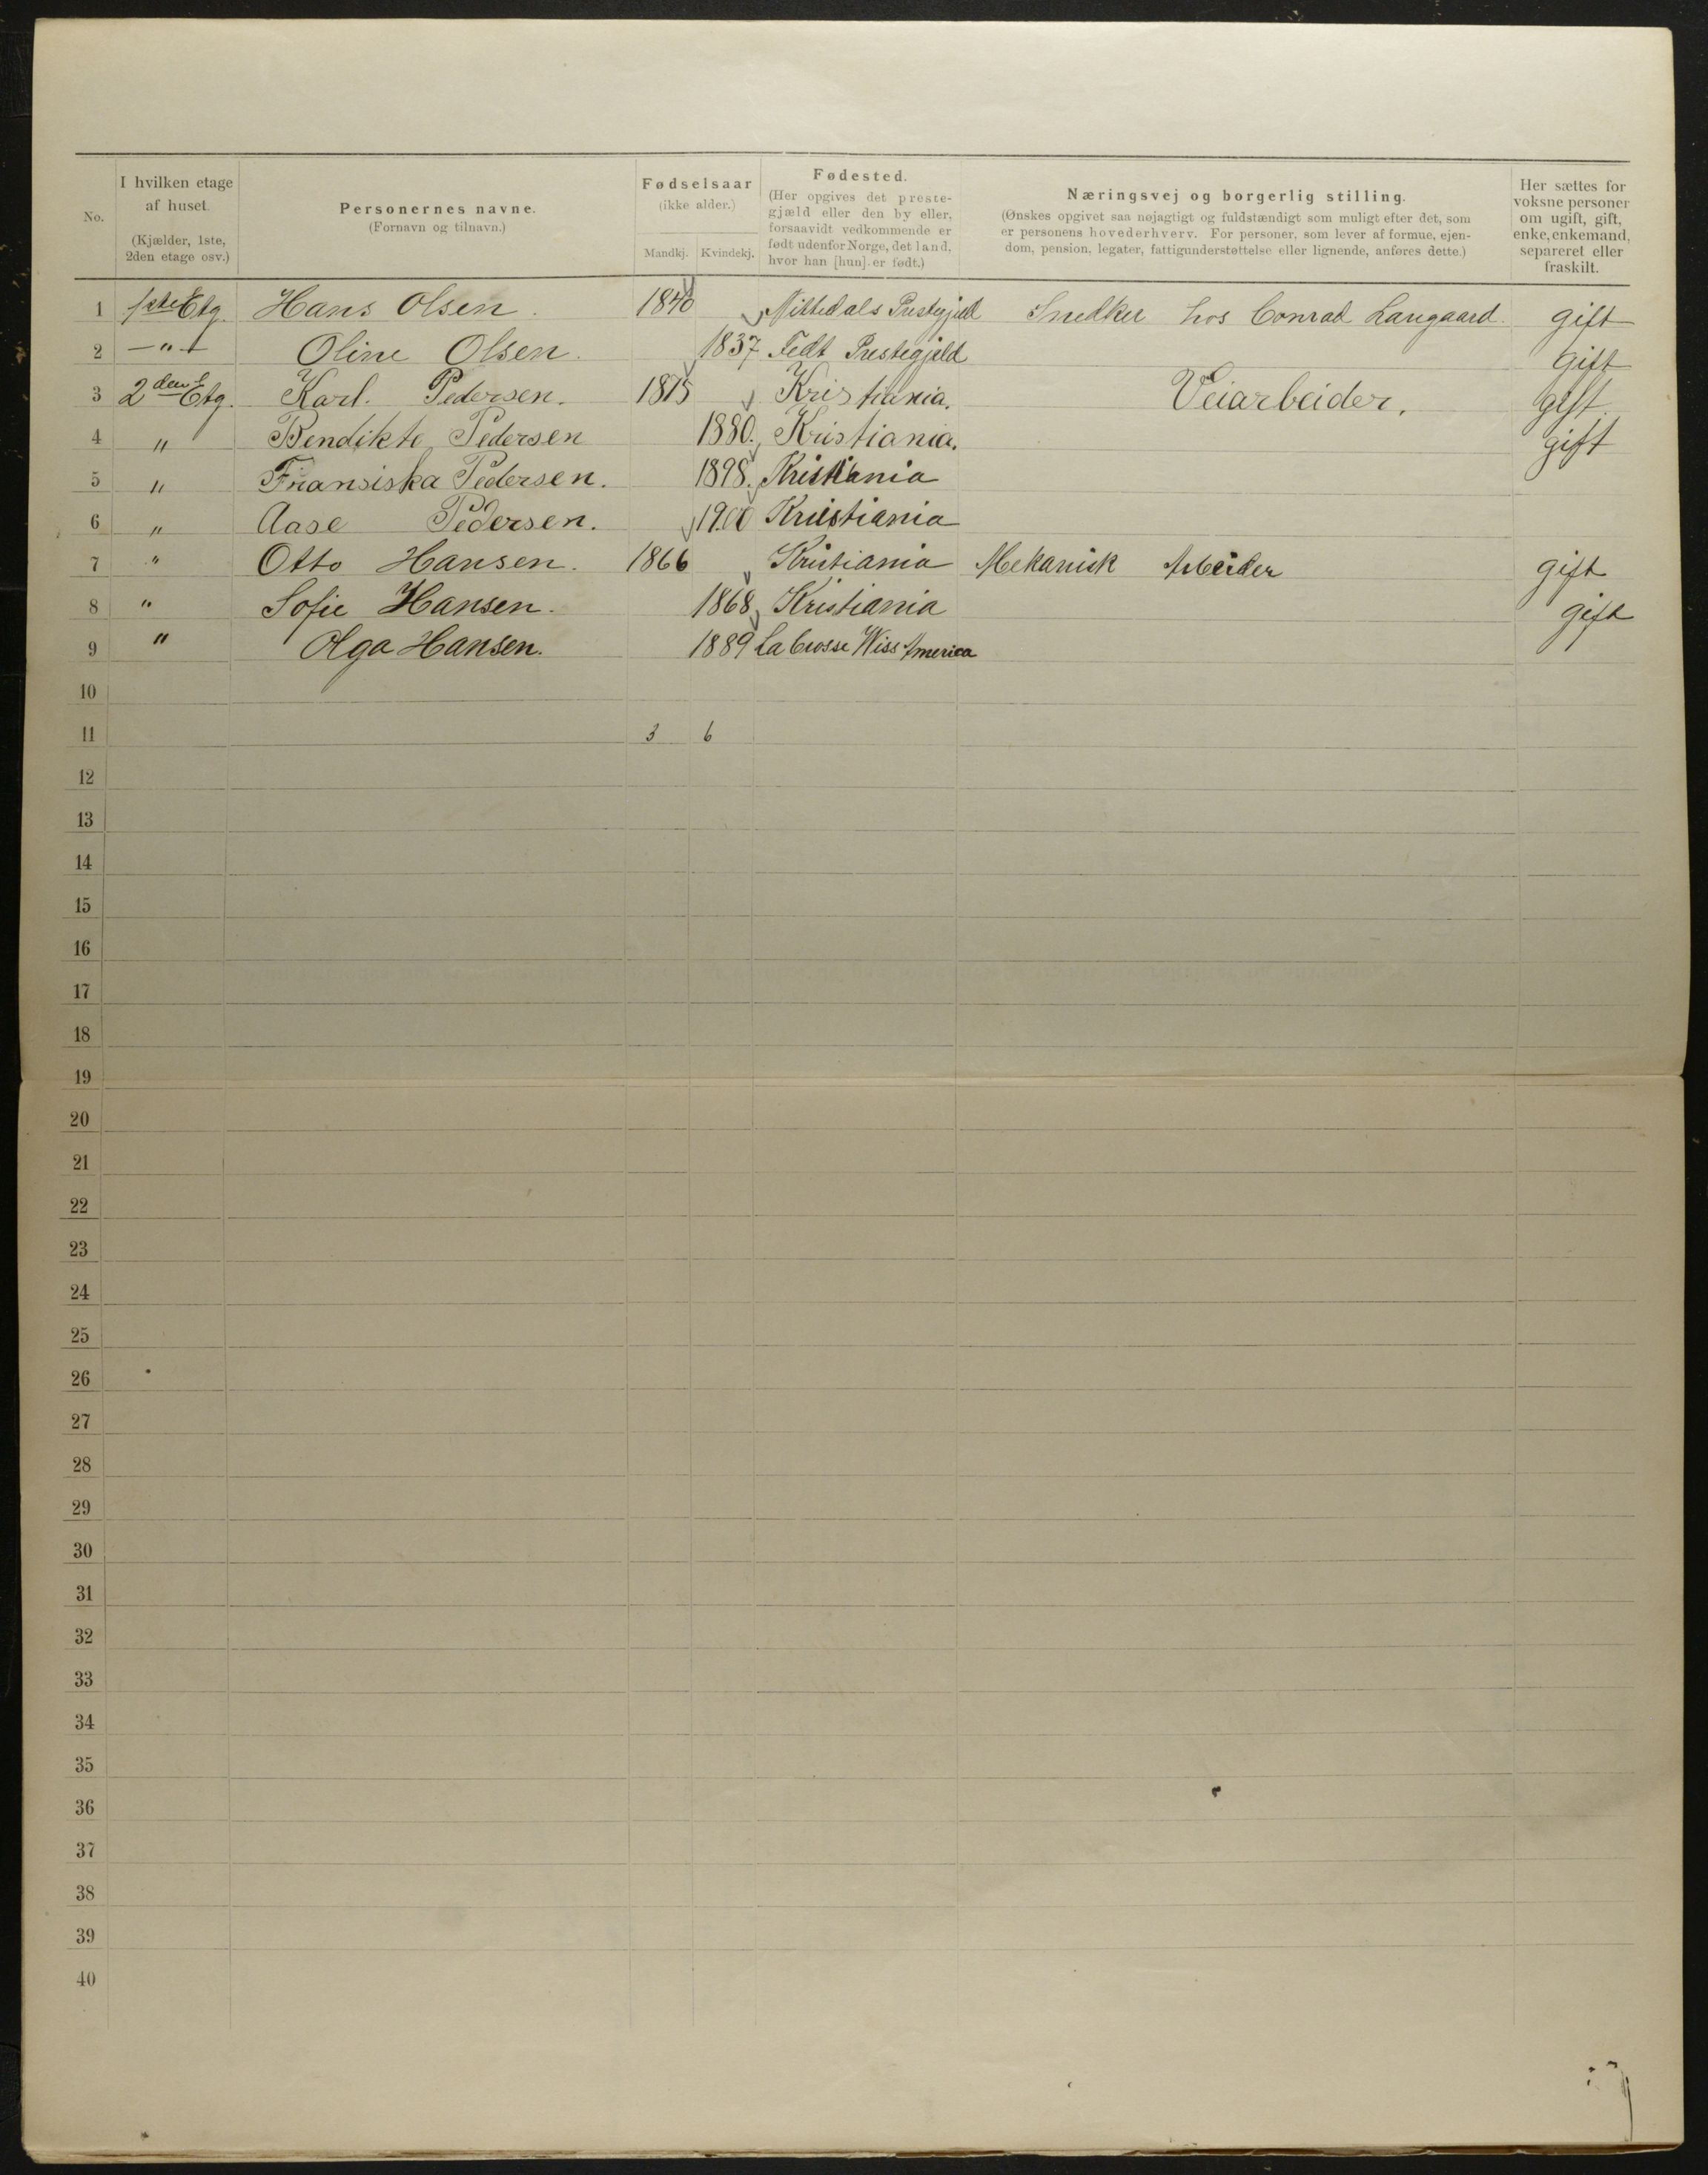 No.
I hvilken etage af huset. (Kjælder, 1ste, 2den etage osv.)
Personernes navne. (Fornavn og tilnavn.)
Fødselsaar (ikke alder.)
Mandkj. Kvindekj.
Fødested. (Her opgives det prestegjæld eller den by eller, forsaavidt vedkommende er født udenfor Norge, det land, hvor han [hun] er født.)
Næringsvej og borgerlig stilling.
(Ønskes opgivet saa nøjagtigt og fuldstændigt som muligt efter det, som er personens hovederhverv. For personer, som lever af formue, ejendom, pension, legater, fattigunderstøttelse eller lignende, anføres dette.)
Her sættes for voksne personer om ugift, gift, enke, enkemand, separeret eller fraskilt.
1 1ste Etg. Hans Olsen. 1840 Nittedals Prestegjeld Snedker hos Conrad Langaard. gift
2 —"— Oline Olsen. 1837 Fedt Prestegjeld gift
3 2den Etg. Karl. Pedersen. 1875 Kristiania. Veiarbeider. gift
4 " Bendikte Pedersen 1880. Kristiania. gift
5 " Fransiska Pedersen. 1898. Kristiania
6 " Aase Pedersen. 1900 Kristiania
7 " Otto Hansen. 1866 Kristiania Mekanisk Arbeider gift
8 " Sofie Hansen. 1868 Kristiania gift
9 " Olga Hansen. 1889 La Crosse Wiss America
10
11 3 6
12
13
14
15
16
17
18
19
20
21
22
23
24
25
26
27
28
29
30
31
32
33
34
35
36
37
38
39
40